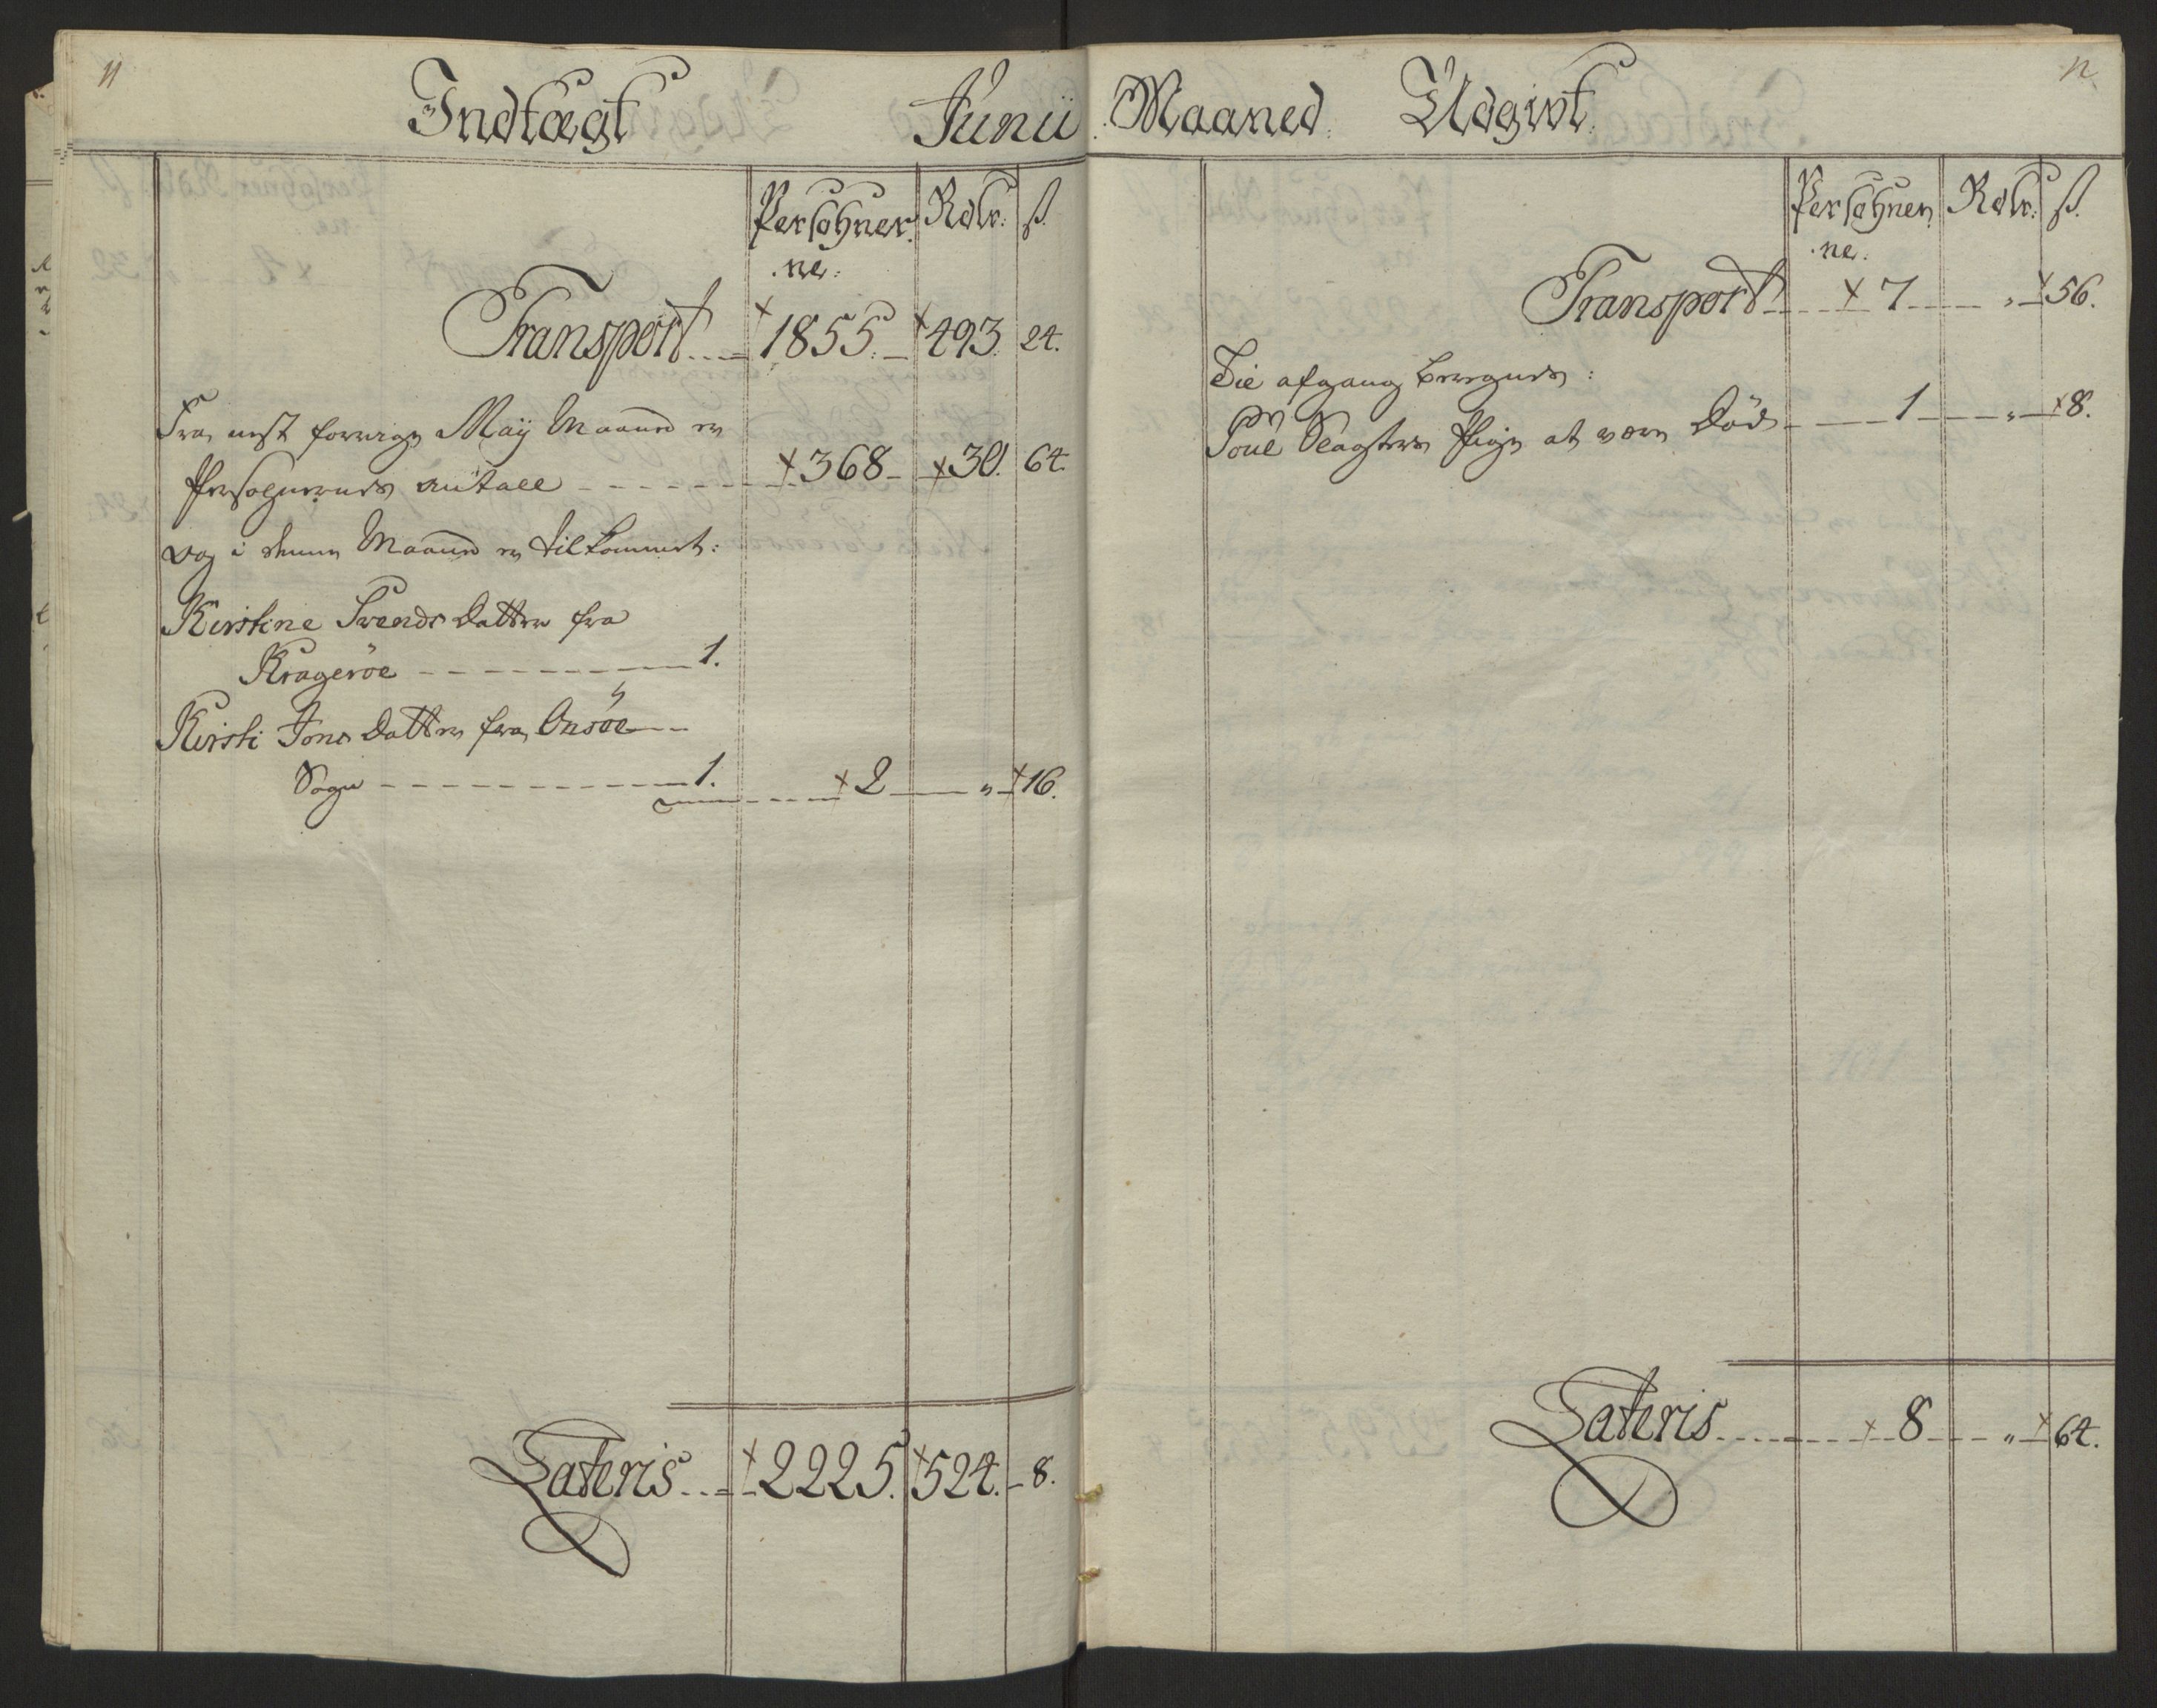 11
Indtægt Junii
Persohner Rdlr. ß.
ne:
Transport 1855. 493. 24.
Fra nest forrige Maij Maaned er
Persohnernes antall 368 30. 64.
og i denne Maaned er tilkommet:
Kirstine Svends Datter fra
Kragerøe 1.
Kirsti Jons Datter fra Onsøe
Sogn 1. 2 „ 16.
Lateris 2225. 524. 8.
12
Maaned Udgivt
Persohner Rdlr. ß.
ne:
Transport 7 „ 56.
Til afgang beregnes:
Poul Slagters Pige at være Død 1 „ 8.
Lateris 8 „ 64.